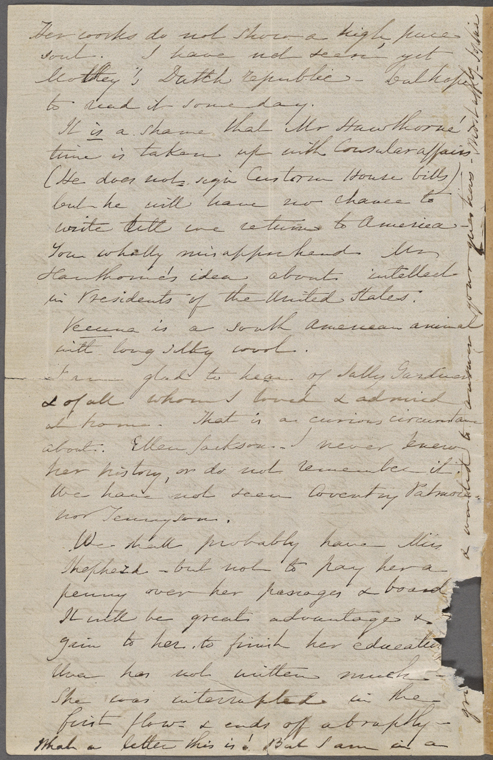 Her works do not show a high, pure
soul. I have not seen yet
Motley's Dutch republic - but hope
to read it some day.
It is a shame that Mr Hawthorne's
time is taken up with Consular affairs
(He does not sign Custom House bills)
but he will have no chance to
write till we return to America.
You wholly misapprehend Mr
Hawthorne's idea about intellect
in Presidents of the United States.
Vecuna is a south American animal
with long silky wool.
I am glad to hear of Sally Gardner
& of all whom I loved & admired
at home. That is a curious circumstan
about Ellen Jackson - I never knew
her history, or do not remember it.
We have not seen Coventry Patmore
nor Tennyson.
We shall probably have Miss
Shepherd - but not to pay her a
penny over her passages & board
It will be great advantage &
gain to her, to finish her education
Una has not written much -
She was interrupted in the
first flow & ends off abruptly -
What a letter this is! But I am in a
& wanted to answer your questions -